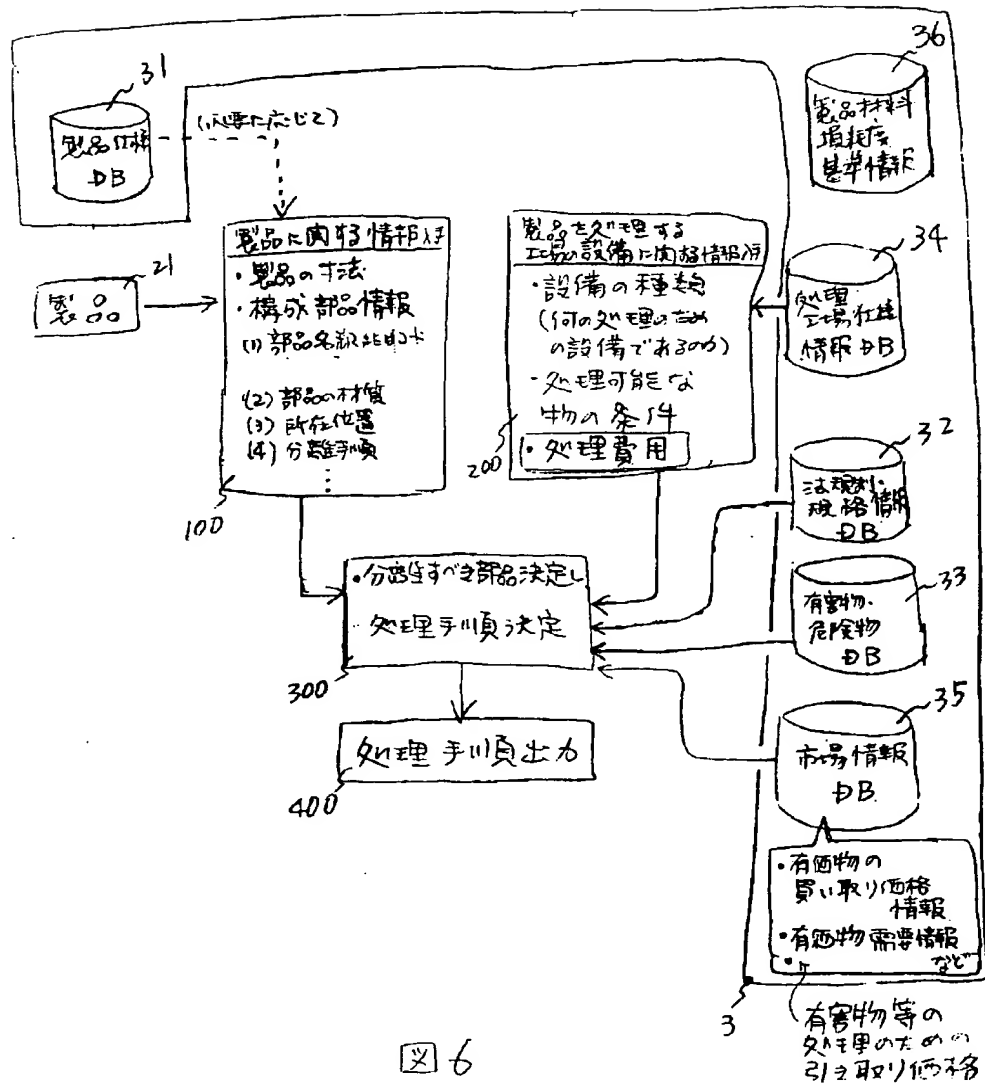 31
製品仕様
DB
(必要に応じて)
36
製品材料
損耗度
基準情報
製品に関する情報入手
・製品の寸法
・構成部品情報
(1) 部品名称
(2) 部品の材質
(3) 所在位置
(4) 分離手順
⋮
100
21
製品
製品を処理する
工場の設備に関する情報入手
・設備の種類
(何の処理のため
の設備であるのか)
・処理可能な
物の条件
・処理費用
200
34
処理
工場仕様
情報DB
32
法規制・
規格情報
DB
33
有害物・
危険物
DB
・分離すべき部品決定し
処理手順を決定
300
処理手順出力
400
35
市場情報
DB
・有価物の
買い取り価格
情報
・有価物需要情報
・
など
3
有害物等の
処理のための
引き取り価格
図6